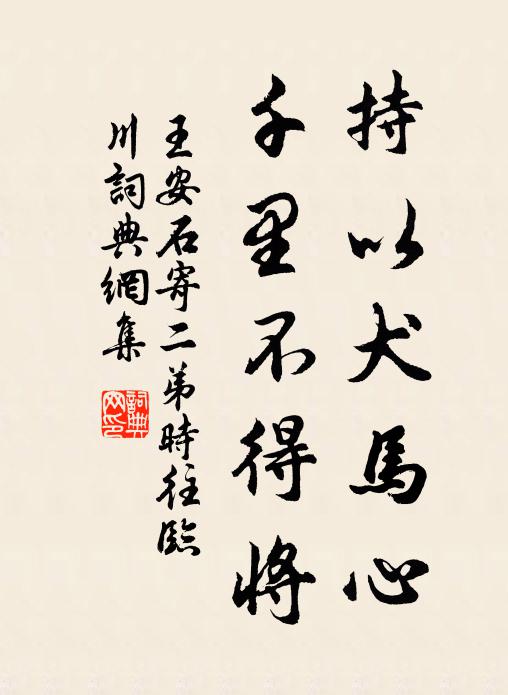 持以犬馬心
千里不得將
王安石寄二弟時往臨
川詞典網集
詞典
网印